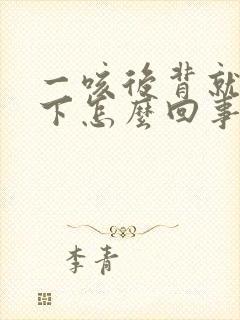 一咳後背就
下怎麼回事
李青